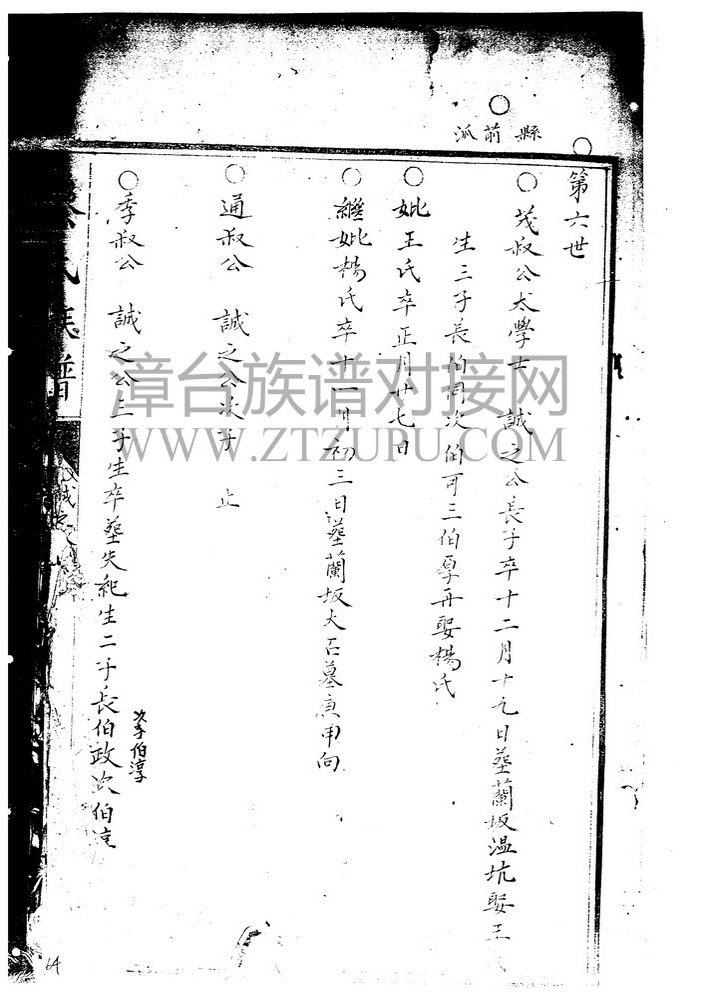 縣前派
第六世
茂叔公太學士 誠之公長子卒十二月十九日塟蘭坂温坑娶王
生三子長伯同次伯可三伯厚再娶楊氏
妣王氏卒正月廿七日
繼妣楊氏卒十一月初三日塟蘭坂大石墓庚申向
通叔公 誠之公次子 止
季叔公 誠之公三子生卒塟失紀生二子長伯政次伯淳
次子伯淳
氏族譜
漳台族谱对接网
WWW.ZTZUPU.COM
64